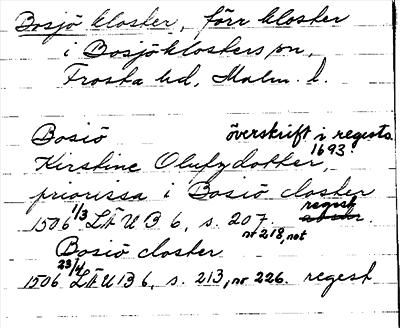 Bosjö kloster, förr kloster
i Bosjöklosters sn,
Frosta hd, Malm. l.
Bosiö överskrift i regesta 1693
Kirstine Olufzdotter,
priorissa i Bosiö closter
1506 1/3 LÄUB 6, s. 207. regest
nr 218, not
Bosiö closter
1506 23/4 LÄUB 6, s. 213, nr 226. regest